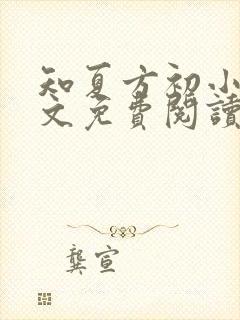 知夏方初小
文免費閱讀
龔宣